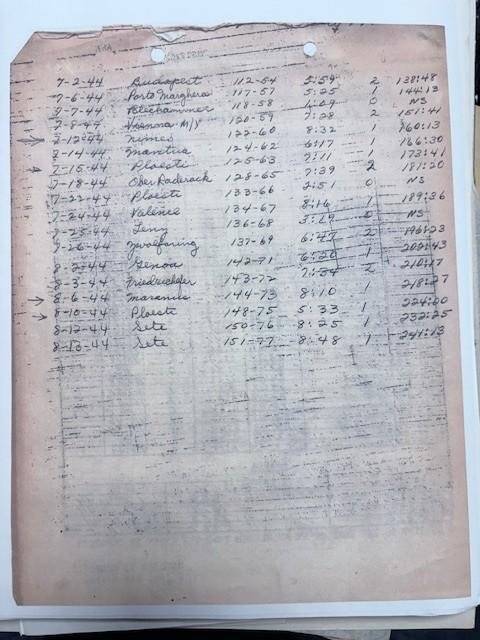 7-2-44 Budapest 112-54 5:59 2 138:48
7-6-44 Porto Marghera 117-57 5:25 1 144:13
7-7-44 Blechammer 118-58 4:09 0 NS
7-8-44 M/Y 120-59 7:28 2 151:41
7-12-44 Nimes 122-60 8:32 1 160:13
7-14-44 Mantua 124-62 6:17 1 166:30
→ 7-15-44 Ploesti 125-63 7:11 1 173:41
7-18-44 Ober Raderack 128-65 7:39 2 181:20
7-22-44 Ploesti 133-66 2:51 0 NS
7-24-44 Valence 134-67 8:16 1 189:36
7-25-44 136-68 3:29 0 NS
7-26-44 137-69 6:47 2 196:23
8-2-44 Genoa 142-71 6:20 1 202:43
8-3-44 143-72 7:34 2 210:17
→ 8-6-44 144-73 8:10 1 218:27
→ 8-10-44 Ploesti 148-75 5:33 1 224:00
8-12-44 Sete 150-76 8:25 1 232:25
8-13-44 Sete 151-77 8:48 1 241:13